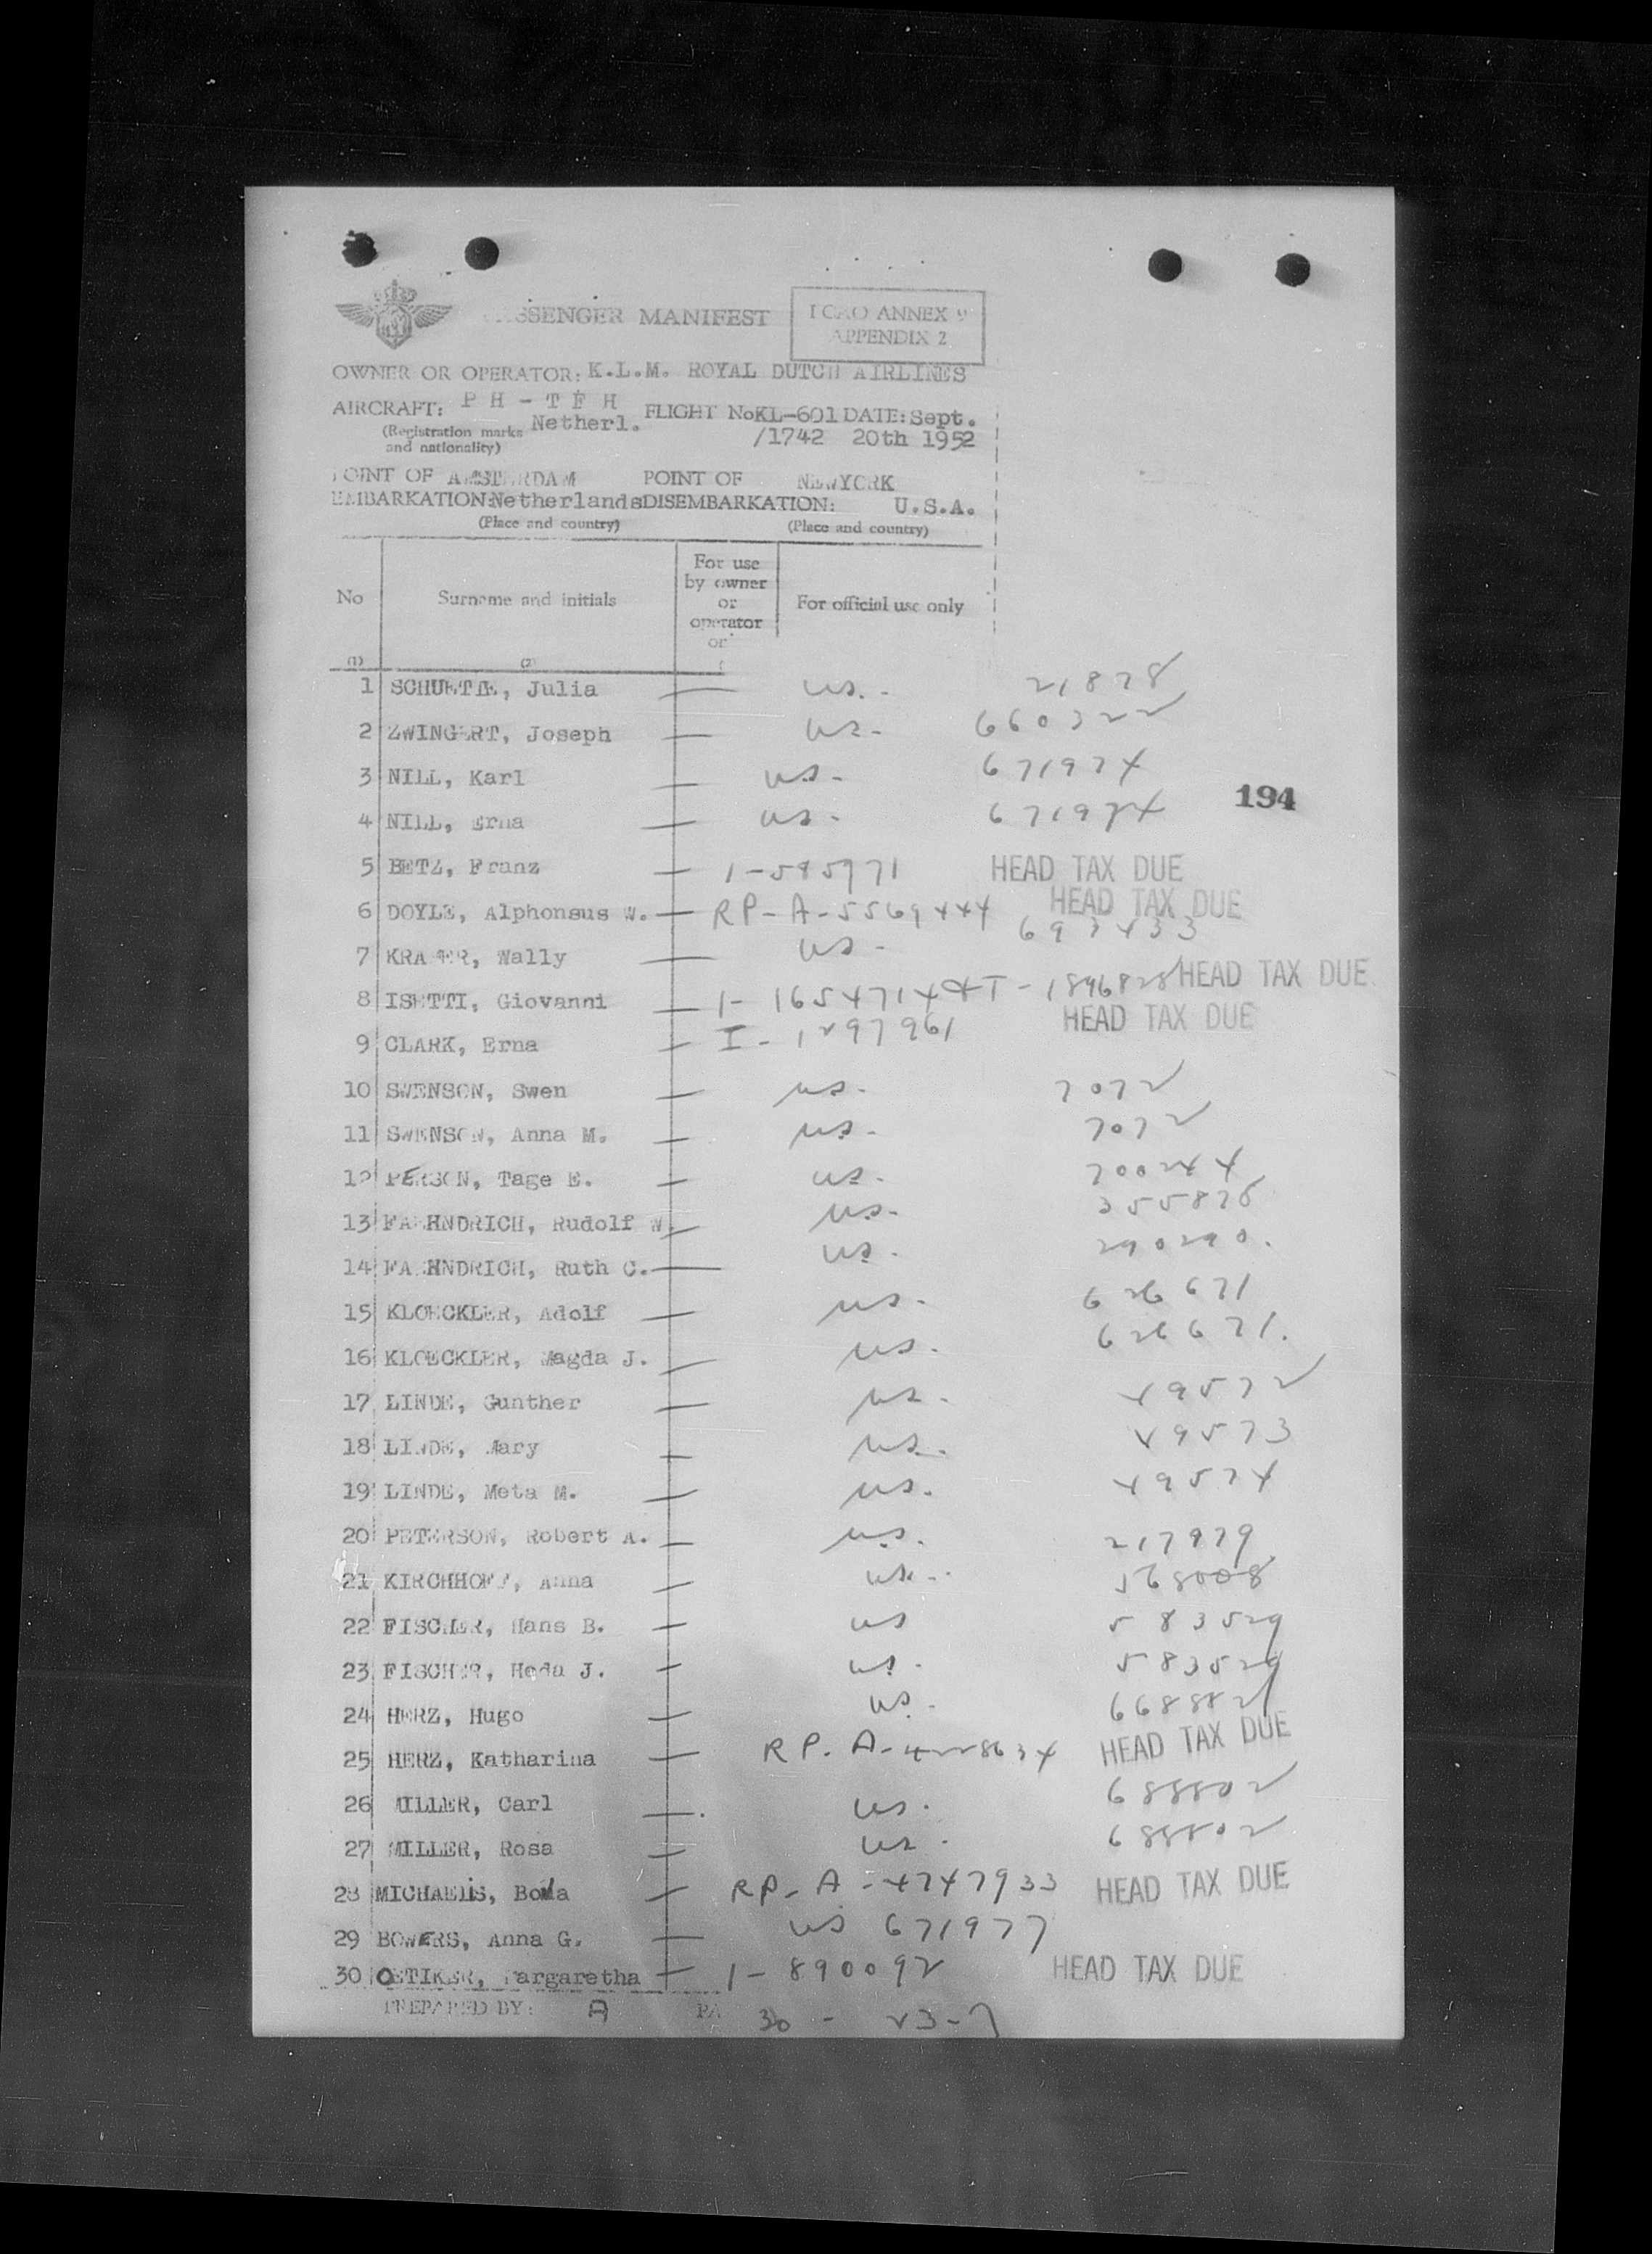 PASSENGER MANIFEST
ICAO ANNEX 9
APPENDIX 2
OWNER OR OPERATOR: K.L.M. ROYAL DUTCH AIRLINES
AIRCRAFT: PH-TFH Netherl. FLIGHT No KL-601 DATE: Sept.
(Registration marks and nationality) /1742 20th 1952
POINT OF AMSTERDAM POINT OF NEWYORK
EMBARKATION: Netherlands DISEMBARKATION: U.S.A.
(Place and country) (Place and country)
No Surname and initials For use by owner or operator For official use only
(1) (2)
1 SCHUETTE, Julia — us. - 21878
2 ZWINGERT, Joseph — us - 660322
3 NILL, Karl — us - 671974
194
4 NILL, Erna — us - 671974
5 BETZ, Franz — 1-595971 HEAD TAX DUE
6 DOYLE, Alphonsus W. — RP-A-5569444 HEAD TAX DUE
7 KRAMER, Wally — us - 693433
8 ISETTI, Giovanni — 1-1654714 & I-1896828 HEAD TAX DUE
9 CLARK, Erna — I-1297961 HEAD TAX DUE
10 SWENSON, Swen — us - 7072
11 SWENSON, Anna M. — us - 7072
12 PERSON, Tage E. — us - 700244
13 FAEHNDRICH, Rudolf W. — us - 355878
14 FAEHNDRICH, Ruth C. — us - 290290.
15 KLOECKLER, Adolf — us - 626671
16 KLOECKLER, Magda J. — us - 626671.
17 LINDE, Gunther — us - 49572
18 LINDE, Mary — us - 49573
19 LINDE, Meta M. — us - 49574
20 PETERSON, Robert A. — us. 217979
21 KIRCHHOFF, Anna — us - 568008
22 FISCHER, Hans B. — us 583529
23 FISCHER, Heda J. — us - 583529
24 HERZ, Hugo — us - 668882
25 HERZ, Katharina — RP-A-4228634 HEAD TAX DUE
26 MILLER, Carl — us - 688802
27 MILLER, Rosa — us - 688802
28 MICHAELIS, — RP-A-4747933 HEAD TAX DUE
29 BOWERS, Anna G. — us 671977
30 OETIKER, Margaretha — 1-890092 HEAD TAX DUE
PREPARED BY: A PA 30 - 23-7